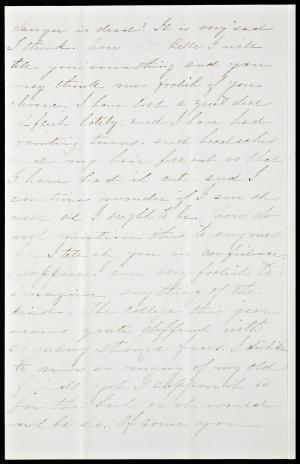 Sawyer is dead? It is very sad
I think. Now Belle I will
tell you something and you
may think me foolish if you
choose. I have lost a great deal
of flesh lately, and I have had
fainting turns, and headaches
and my hair fell out so that
I have had it cut, and I
sometimes wonder if I am as
well as I ought to be. Now do
not mention this to anyone
for I tell it you in confidence.
I suppose I am very foolish to
imagine anything of the
kind. The college this year
seems quite different with
so many strange faces. I dislike
to miss so many of my old
friends yet I suppose it is
for the best or it would
not be so. Of course you